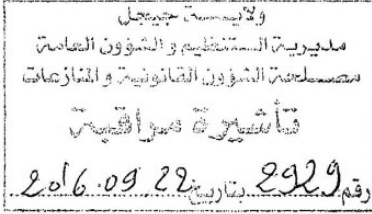 ولايـــة جيجل
مديرية الـتنظيم و الشؤون العامة
مصلحة الشؤون القانونية و المنازعات
تأشيرة مراقبة
رقم 2929 بتاريخ 2016.09.22